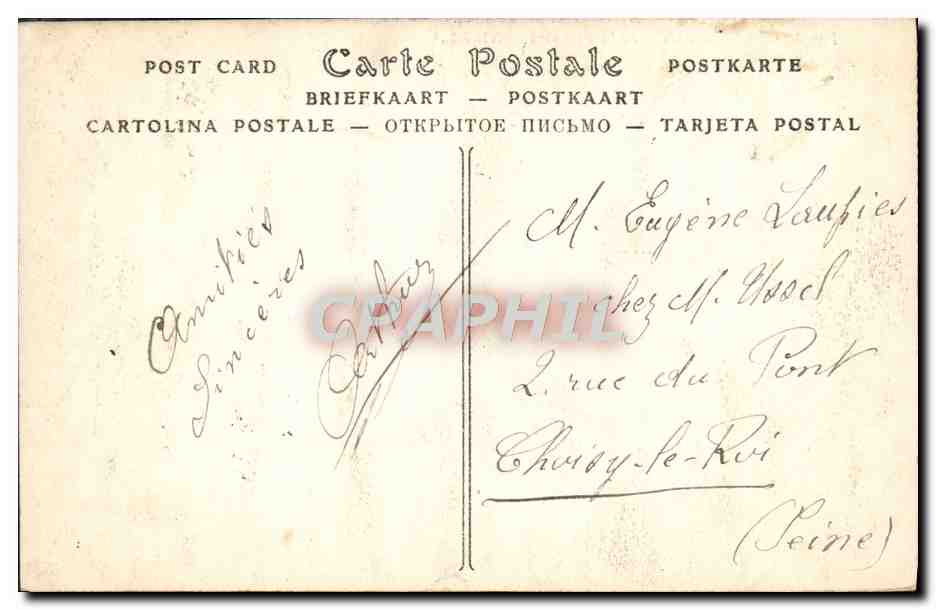 POST CARD Carte Postale POSTKARTE
BRIEFKAART — POSTKAART
CARTOLINA POSTALE — ОТКРЫТОЕ ПИСЬМО — TARJETA POSTAL
Amitiés
Sincères
Arthur
M. Eugène Laupies
chez M. Ussel
2. rue du Pont
Choisy-le-Roi
(Seine)
CPAPHIL